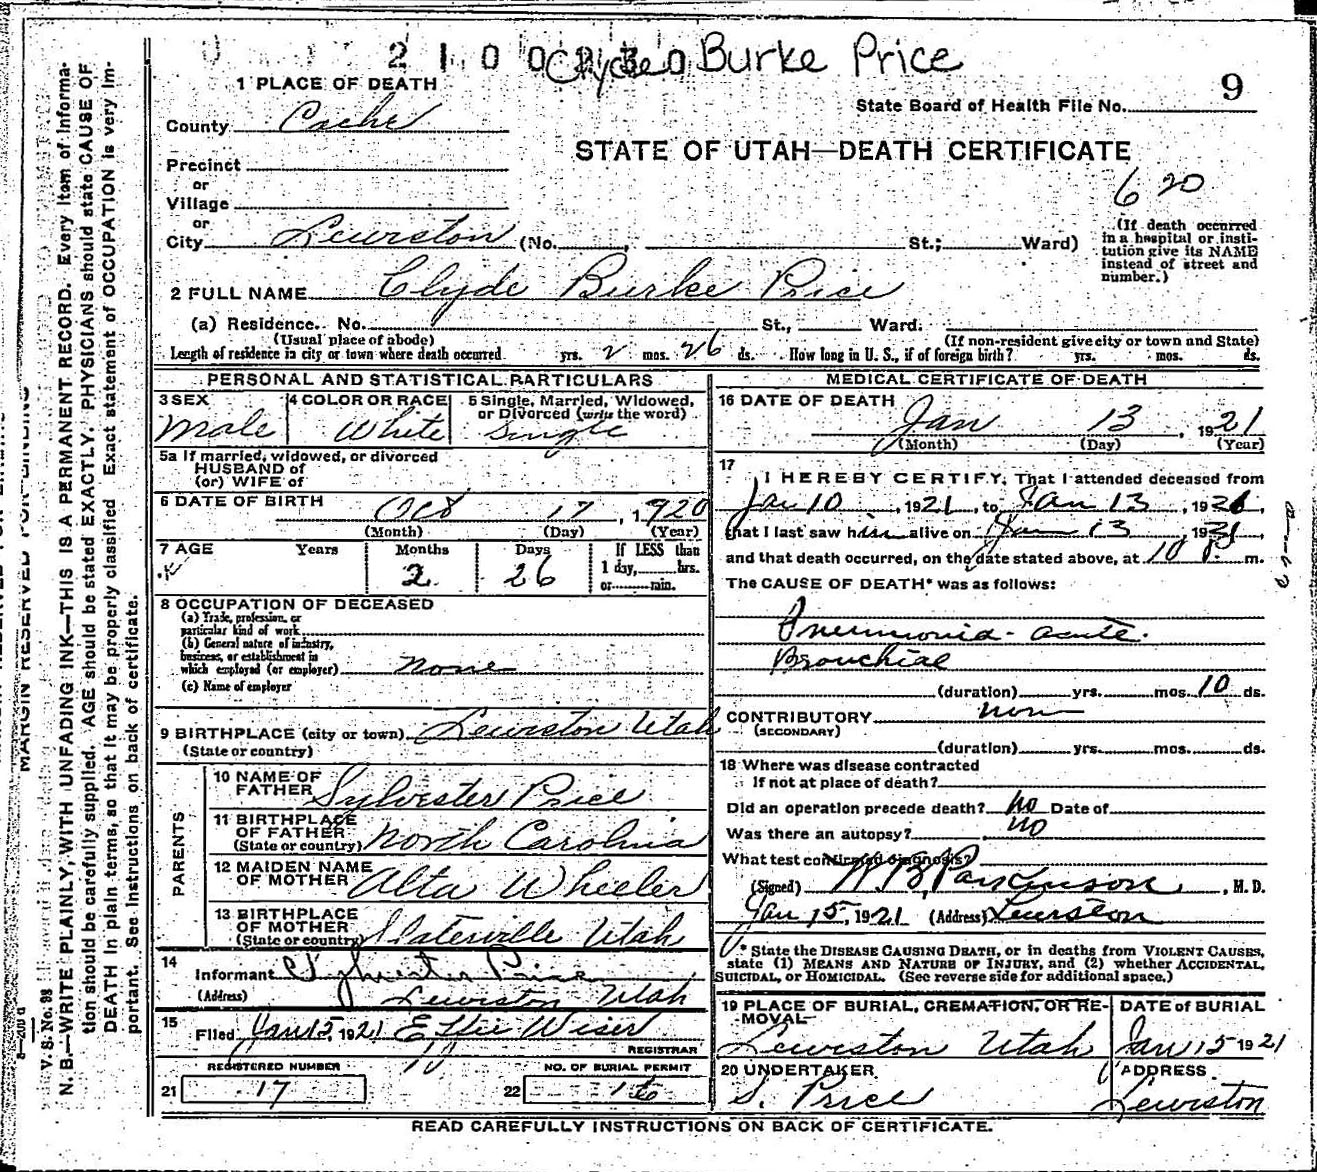 2 1 0 0 Clyde Burke Price
9
1 PLACE OF DEATH
State Board of Health File No.
County Cache
STATE OF UTAH—DEATH CERTIFICATE
620
Precinct
or
Village
or
City Lewiston (No. , St.; Ward)
(If death occurred in a hospital or institution give its NAME instead of street and number.)
2 FULL NAME Clyde Burke Price
(a) Residence. No. St., Ward.
(Usual place of abode) (If non-resident give city or town and State)
Length of residence in city or town where death occurred yrs. 2 mos. 26 ds. How long in U. S., if of foreign birth? yrs. mos. ds.
PERSONAL AND STATISTICAL PARTICULARS
3 SEX Male
4 COLOR OR RACE White
5 Single, Married, Widowed, or Divorced (write the word) Single
5a If married, widowed, or divorced
HUSBAND of
(or) WIFE of
6 DATE OF BIRTH Oct 17, 1920
(Month) (Day) (Year)
7 AGE Years Months Days If LESS than
2 26 1 day, hrs.
or min.
8 OCCUPATION OF DECEASED
(a) Trade, profession, or
particular kind of work
(b) General nature of industry,
business, or establishment in
which employed (or employer) none
(c) Name of employer
9 BIRTHPLACE (city or town) Lewiston Utah
(State or country)
PARENTS
10 NAME OF FATHER Sylvester Price
11 BIRTHPLACE OF FATHER (State or country) North Carolina
12 MAIDEN NAME OF MOTHER Alta Wheeler
13 BIRTHPLACE OF MOTHER (State or country) Slaterville Utah
14
Informant Sylvester Price
(Address) Lewiston Utah
15
Filed Jan 15, 1921 Effie Wiser
REGISTRAR
REGISTERED NUMBER NO. OF BURIAL PERMIT
21 17 22
MEDICAL CERTIFICATE OF DEATH
16 DATE OF DEATH
Jan 13, 1921
(Month) (Day) (Year)
17
I HEREBY CERTIFY, That I attended deceased from
Jan 10, 1921, to Jan 13, 1921,
that I last saw him alive on Jan 13, 1921,
and that death occurred, on the date stated above, at 10 P. m.
The CAUSE OF DEATH* was as follows:
Pneumonia - acute.
Bronchial
(duration) yrs. mos. 10 ds.
CONTRIBUTORY none
(SECONDARY)
(duration) yrs. mos. ds.
18 Where was disease contracted
If not at place of death?
Did an operation precede death? No Date of
Was there an autopsy? no
What test confirmed diagnosis?
(Signed) W B Parkinson, M. D.
Jan 15, 1921 (Address) Lewiston
* State the DISEASE CAUSING DEATH, or in deaths from VIOLENT CAUSES,
state (1) MEANS AND NATURE OF INJURY, and (2) whether ACCIDENTAL,
SUICIDAL, or HOMICIDAL. (See reverse side for additional space.)
19 PLACE OF BURIAL, CREMATION, OR REMOVAL Lewiston Utah
DATE OF BURIAL Jan 15 1921
20 UNDERTAKER S. Price
ADDRESS Lewiston
READ CAREFULLY INSTRUCTIONS ON BACK OF CERTIFICATE.
MARGIN RESERVED FOR BINDING
V. S. No. 98
N. B.—WRITE PLAINLY, WITH UNFADING INK—THIS IS A PERMANENT RECORD. Every item of informa-
tion should be carefully supplied. AGE should be stated EXACTLY. PHYSICIANS should state CAUSE OF
DEATH in plain terms, so that it may be properly classified. Exact statement of OCCUPATION is very im-
portant. See Instructions on back of certificate.